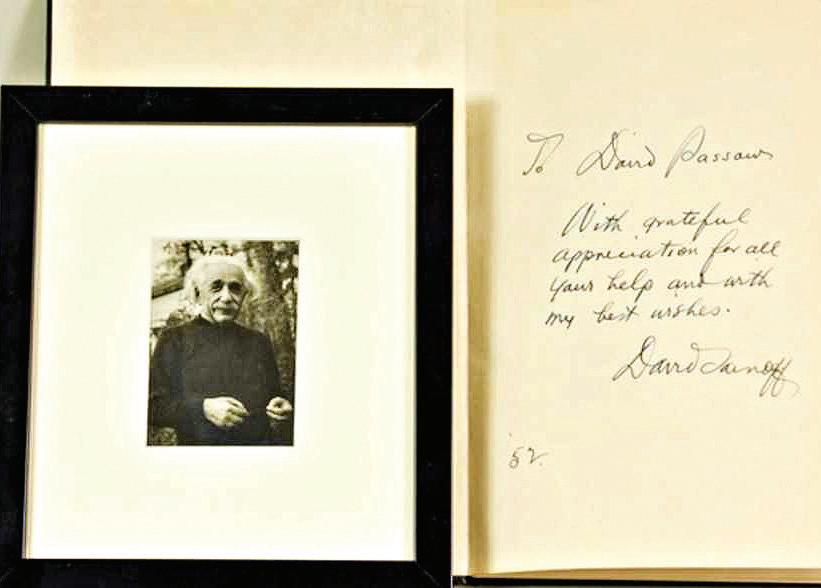 To David Passow
With grateful
appreciation for all
your help and with
my best wishes.
David
'52.